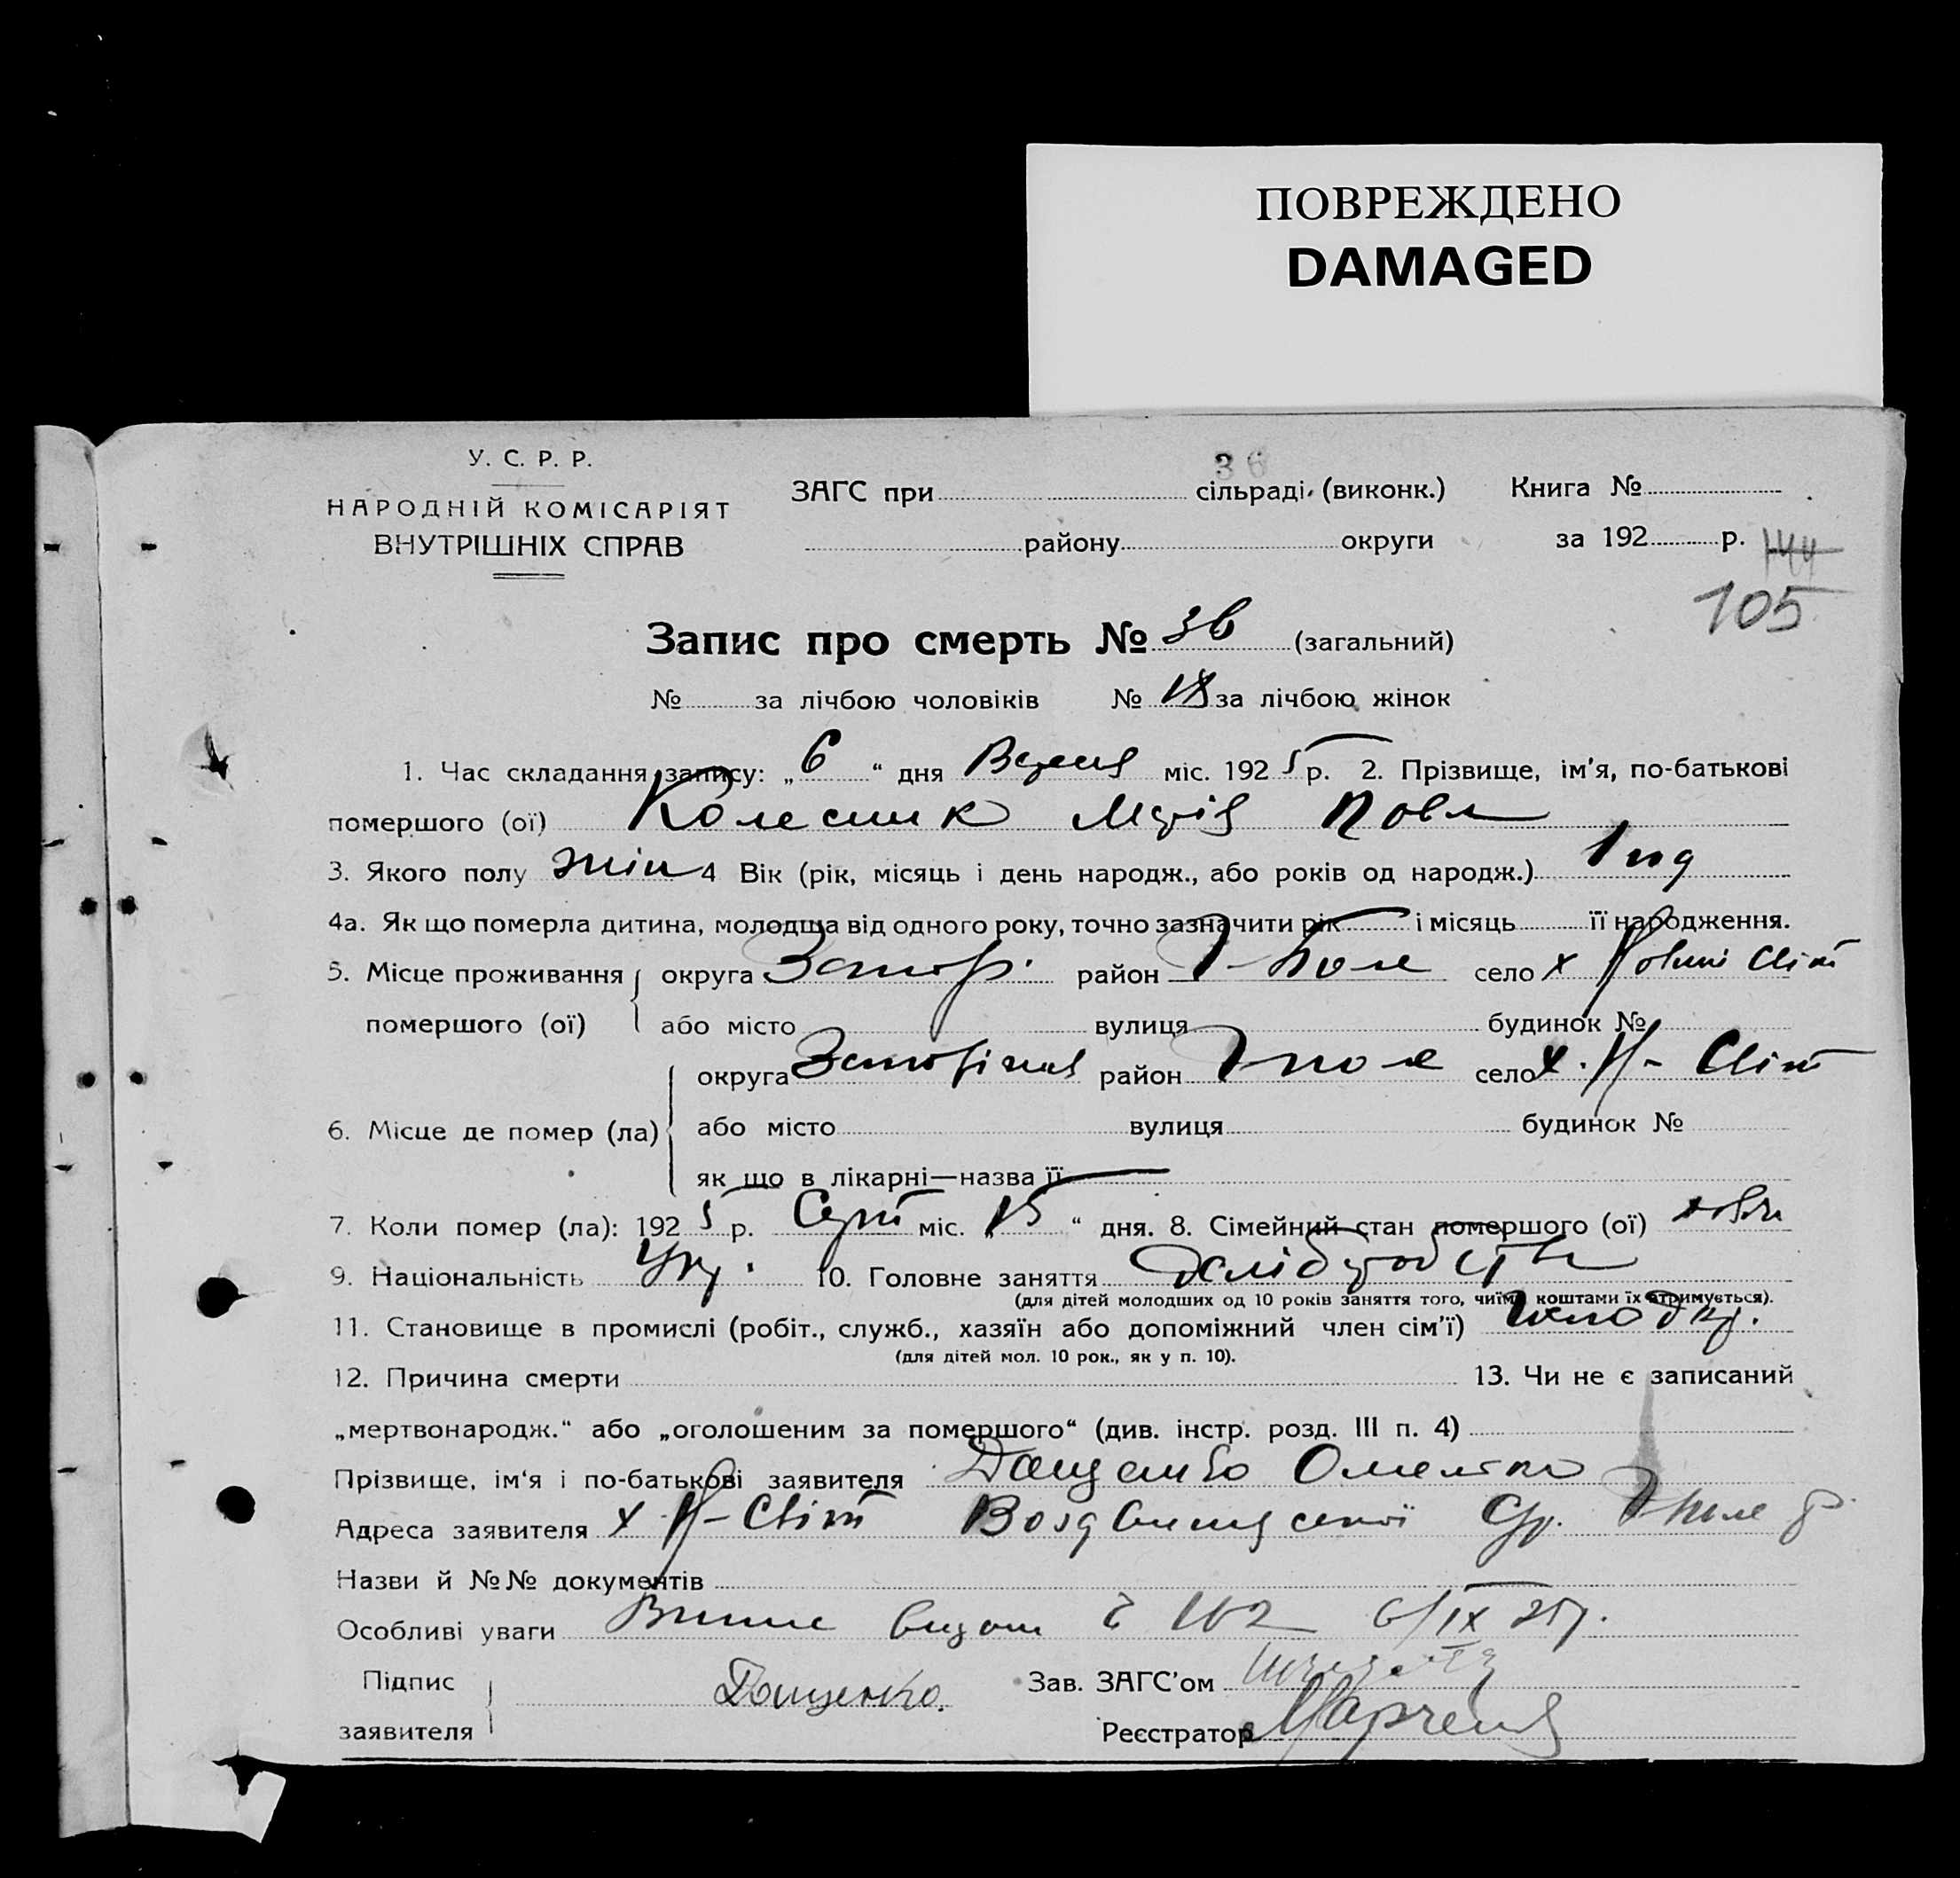 ПОВРЕЖДЕНО
DAMAGED
У. С. Р. Р.
НАРОДНІЙ КОМІСАРІЯТ
ВНУТРІШНІХ СПРАВ
36
ЗАГС при сільраді (виконк.) Книга №
району округи за 192 р.
144
105
Запис про смерть № 36 (загальний)
№ за лічбою чоловіків № 18 за лічбою жінок
1. Час складання запису: „6“ дня Вересня міс. 1925 р. 2. Прізвище, ім'я, по-батькові
помершого (ої) Колесник Марія Повл
3. Якого полу жін 4 Вік (рік, місяць і день народж., або років од народж.) 1 год
4а. Як що померла дитина, молодша від одного року, точно зазначити рік і місяць її народження.
5. Місце проживання округа Запорі. район Г-поле село х Новий Світ
помершого (ої) або місто вулиця будинок №
округа Запоріжжя район Гполе село х. Н- Світ
6. Місце де помер (ла) або місто вулиця будинок №
як що в лікарні—назва її
7. Коли помер (ла): 1925 р. Серп міс. „15“ дня. 8. Сімейний стан помершого (ої)
9. Національність Укр. 10. Головне заняття хліборобств
(для дітей молодших од 10 років заняття того, чиїми коштами їх отримується).
11. Становище в промислі (робіт., служб., хазяїн або допоміжний член сім'ї)
(для дітей мол. 10 рок., як у п. 10).
12. Причина смерти 13. Чи не є записаний
„мертвонародж.“ або „оголошеним за помершого“ (див. інстр. розд. III п. 4)
Прізвище, ім'я і по-батькові заявителя Дащенко Омелько
Адреса заявителя х Н-Світ Воздвиженської Ср. Гполе р
Назви й №№ документів
Особливі уваги видан 162 6/IX 25р.
Підпис Дащенко. Зав. ЗАГС'ом
заявителя Реєстратор Марченко